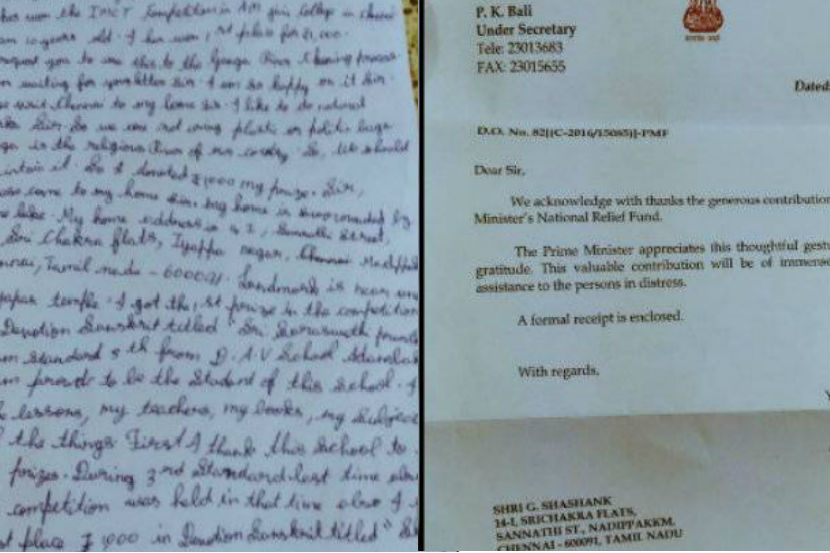 won the Competition in Jain College in
years old. I have won 1st place for ₹1,000.
request you to use this to the Ganga River Cleaning process
waiting for your letter Sir. I am so happy on it Sir.
visit Chennai to my home Sir. I like to do natural
Sir. So we are not using plastic or politic bags
in the religious River of our country. So, we should
it. So I donated ₹1000 my prize. Sir,
come to my home Sir. my home is surrounded by
lake. My home address is 14-I, Sannathi Street,
Sri Chakra flats, Iyappa nagar, Chennai
Tamil nadu - 600091. Landmark is near
temple. I got the 1st prize in the competition
Devotion Sanskrit titled "Sri Saraswathi
Standard 5th from D.A.V School
to be the Student of this school. I
lessons, my teachers, my books, my
the things First I thank this school to
prizes. During 3rd Standard last time also
competition was held in that time also I
place ₹1,000 in Devotion Sanskrit titled "
P. K. Bali
Under Secretary
Tele: 23013683
FAX: 23015655
Dated:
D.O. No. 82[(C-2016/15085)]-PMF
Dear Sir,
We acknowledge with thanks the generous contribution
Minister's National Relief Fund.
The Prime Minister appreciates this thoughtful
gratitude. This valuable contribution will be of
assistance to the persons in distress.
A formal receipt is enclosed.
With regards,
SHRI G. SHASHANK
14-I, SRICHAKRA FLATS,
SANNATHI ST., NADIPPAKKM,
CHENNAI - 600091, TAMIL NADU